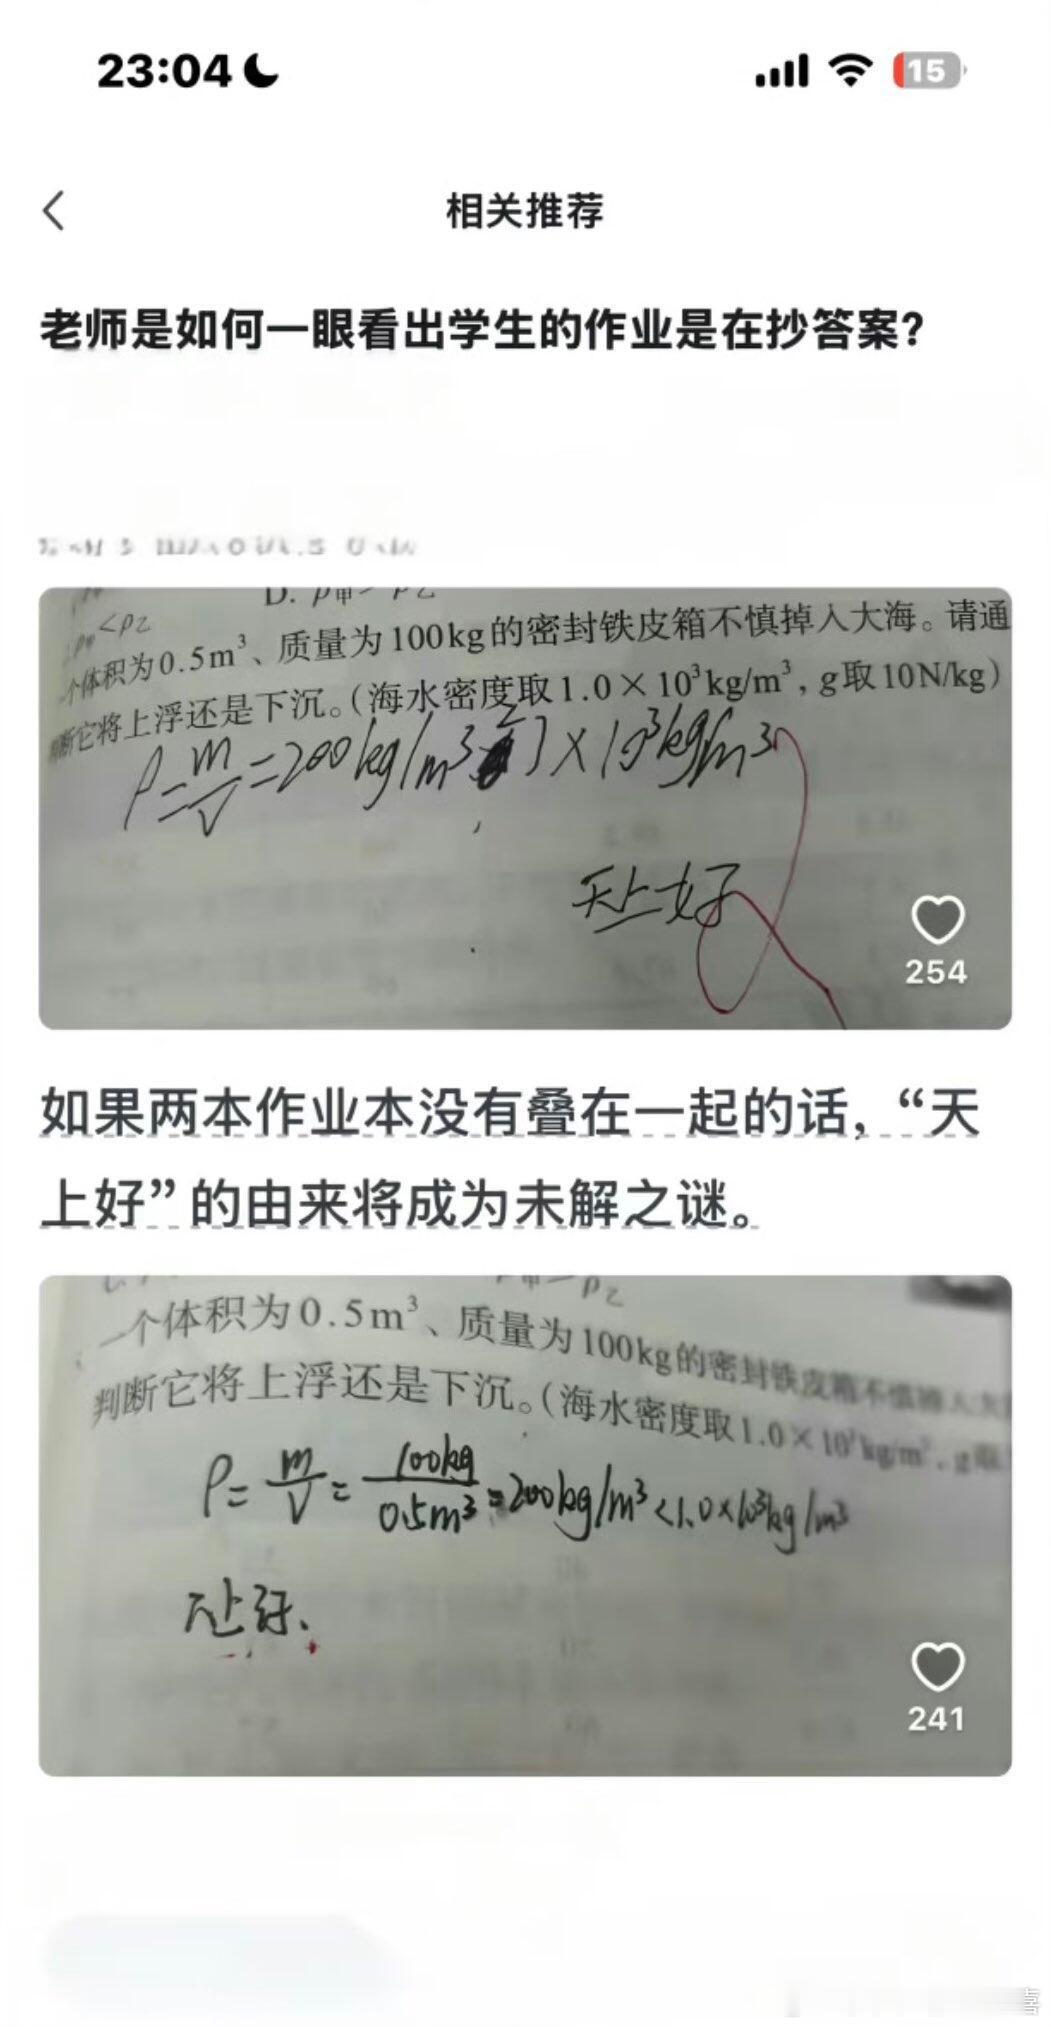 23:04
15
相关推荐
老师是如何一眼看出学生的作业是在抄答案?
D. ρ甲 ρ乙
<ρ乙
一个体积为0.5m³、质量为100kg的密封铁皮箱不慎掉入大海。请通
判断它将上浮还是下沉。(海水密度取1.0×10³kg/m³,g取10N/kg)
ρ=m/V=200kg/m³ ×10³kg/m³
天上好
254
如果两本作业本没有叠在一起的话,“天
上好”的由来将成为未解之谜。
ρ乙
一个体积为0.5m³、质量为100kg的密封铁皮箱不慎掉入大
判断它将上浮还是下沉。(海水密度取1.0×10³kg/m³,g取
ρ=m/V=100kg/0.5m³=200kg/m³<1.0×10³kg/m³
241